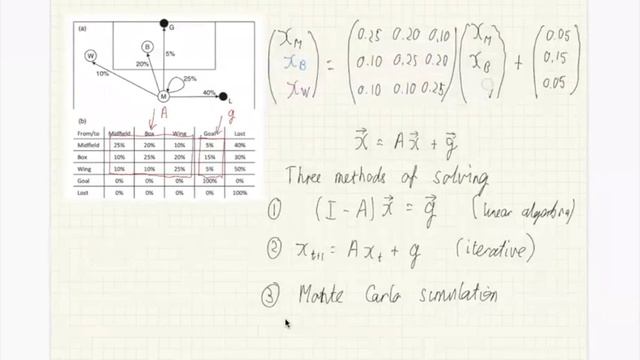 (a)
G
W
B
20%
5%
10%
25%
M
40%
L
A
g
(b)
From/to Midfield Box Wing Goal Lost
Midfield 25% 20% 10% 5% 40%
Box 10% 25% 20% 15% 30%
Wing 10% 10% 25% 5% 50%
Goal 0% 0% 0% 100% 0%
Lost 0% 0% 0% 0% 100%
x_M 0.25 0.20 0.10 x_M 0.05
x_B = 0.10 0.25 0.20 x_B + 0.15
x_W 0.10 0.10 0.25 0.05
x⃗ = Ax⃗ + g⃗
Three methods of solving
① (I - A) x⃗ = g⃗ (linear algebra)
② x_{t+1} = A x_t + g (iterative)
③ Monte Carlo simulation